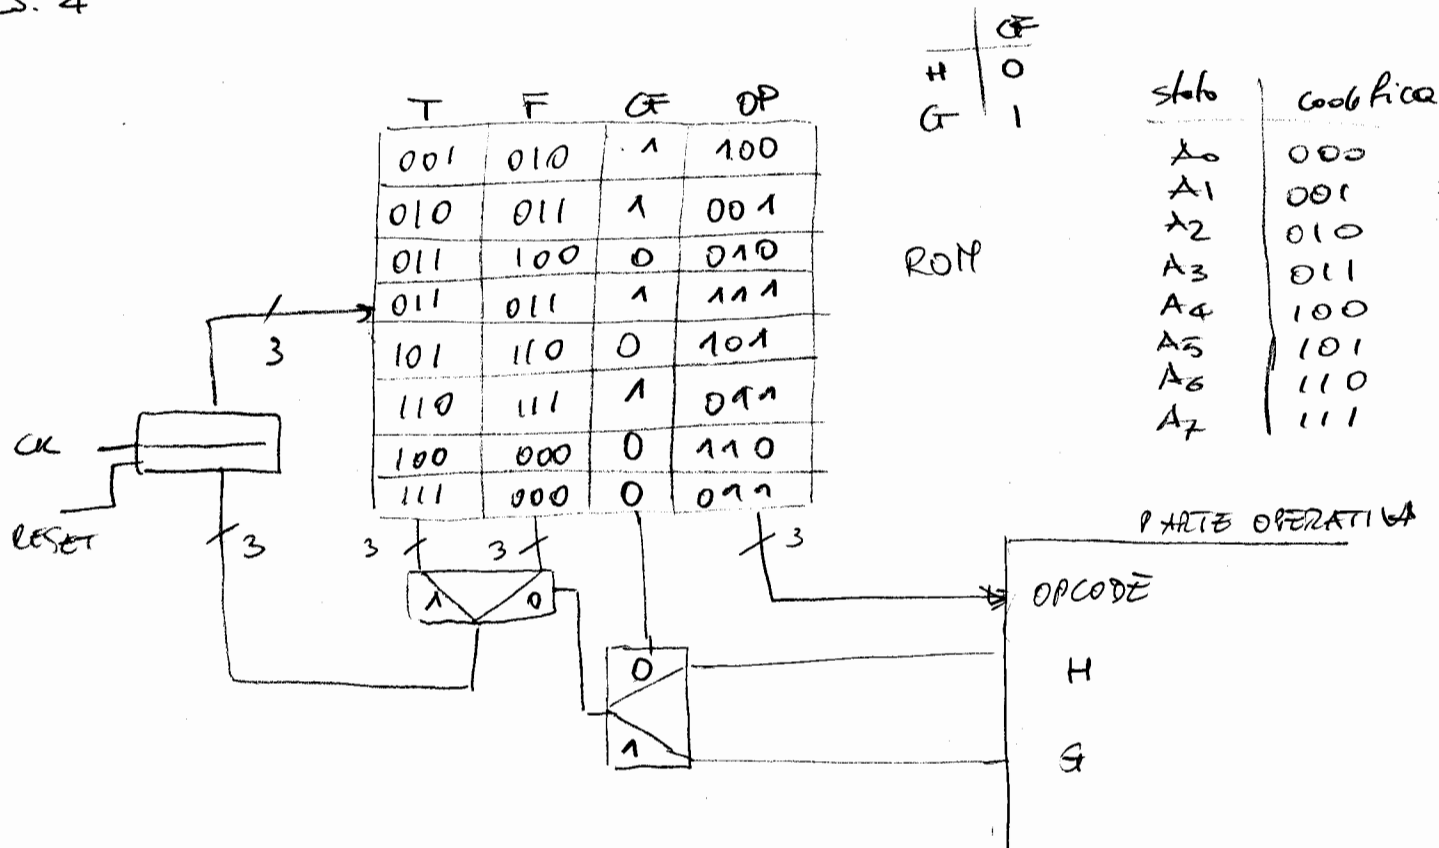 S. 4
CF
H 0
G 1
T F CF OP
001 010 1 100
010 011 1 001
011 100 0 010
011 011 1 111
101 110 0 101
110 111 1 011
100 000 0 110
111 000 0 011
ROM
stato codifica
A0 000
A1 001
A2 010
A3 011
A4 100
A5 101
A6 110
A7 111
3
CK
RESET
3
3 3 3
1 0
0
1
PARTE OPERATIVA
OPCODE
H
G